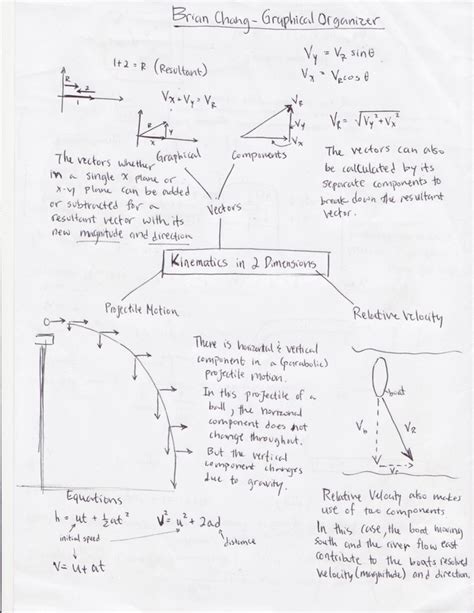 Brian Chang - Graphical Organizer
1+2 = R (Resultant)
R
2
1
Vx + Vy = VR
R
Y
X
VR
Vy
Vx
Vy = VR sinθ
Vx = VR cosθ
VR = √Vy² + Vx²
Graphical
Components
The vectors whether
in a single x plane or
x-y plane can be added
or subtracted for a
resultant vector with its
new magnitude and direction
The vectors can also
be calculated by its
separate components to
break down the resultant
vector.
Vectors
Kinematics in 2 Dimensions
Projectile Motion
Relative Velocity
There is horizontal & vertical
component in a (parabolic)
projectile motion.
In this projectile of a
ball, the horizontal
component does not
change throughout.
But the vertical
component changes
due to gravity.
boat
Vb
VR
Vr
Equations
h = ut + ½at²
initial speed
v² = u² + 2ad
distance
v = u + at
Relative Velocity also makes
use of two components
In this case, the boat moving
south and the river flow east
contribute to the boats resolved
velocity (magnitude) and direction.